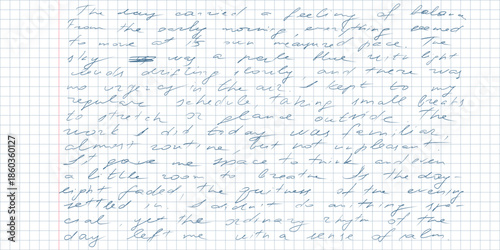 The day carried a feeling of balance
From the early morning, everything seemed
to move at its own measured pace. The
sky was a pale blue with light
clouds drifting slowly, and there was
no urgency in the air I kept to my
regular schedule, taking small breaks
to stretch or glance outside The
work I did today was familiar,
almost routine, but not unpleasant
It gave me space to think and even
a little room to breathe As the day-
light faded, the quietness of the evening
settled in I didn't do anything spe-
cial, yet the ordinary rhythm of the
day left me with a sense of calm
Adobe Stock | #1860360127